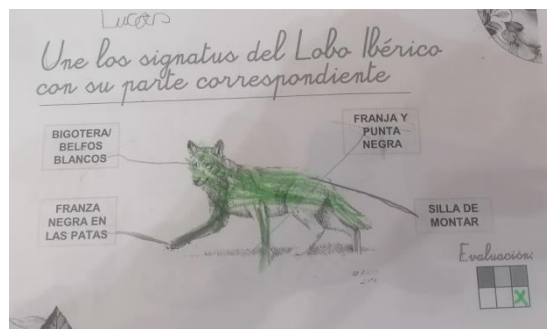 Lucas
Une los signatus del Lobo Ibérico
con su parte correspondiente
BIGOTERA/
BELFOS
BLANCOS
FRANJA Y
PUNTA
NEGRA
FRANZA
NEGRA EN
LAS PATAS
SILLA DE
MONTAR
Evaluación:
X